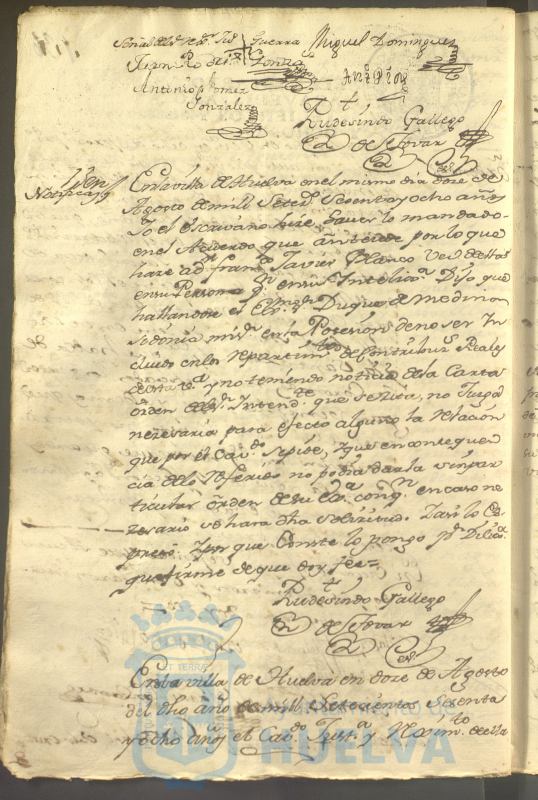 Señal del Sor Rexor Joseph Guerra Miguel Dominguez
Juan Ro de la Gonza
Antonio Gomez
Gonzalez
Rudesindo Gallego
de Tovar
Esno
Notificaon
En la villa de Huelva en el mismo dia doze de
Agosto de mill Setezs Sesenta y ocho años
Yo el escrivano hize saver lo mandado
en el Acuerdo que antecede por lo que
haze a Dn Franco Javier Blanco Vezo de esta
en su Persona qn en su Inteliga Dijo que
hallandose el Exmo Sr Duque de Medina
Sidonia mi Sr en la Posesion de no ser In
cluido en los repartimtos de Contribuzs Reales
de esta va y no teniendo noticia de la Carta
orden del Sr Intendte que se zita, no Juzga
nezesaria para efecto alguno la relacion
que por el Cavdo se pide, y que en consequen
cia de lo referido no podia darla sin par
ticular orden de su Exa con qn en caso ne
zesario se hara dha solizitud. Y asi lo Es
preso. Y para que Conste lo pongo pr Dilixa
que firme de que doy fee=
Rudesindo Gallego
de Tovar
Esno
En la villa de Huelva en doze de Agosto
del dho año de mill Setecientos Sesenta
y ocho años el Cavdo Justa y Reximto de ella
ET TERRÆ
HUELVA